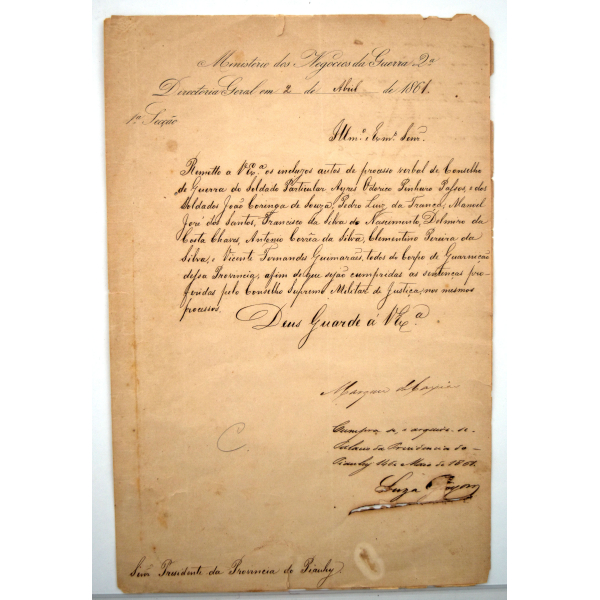 Ministerio dos Negocios da Guerra 2ª
Directoria Geral em 2 de Abril de 1861.
1ª Secção
Illmº e Exmº Senr.
Remetto a V Exª os incluzos autos de processo verbal de Conselho
de Guerra do Soldado Particular Ayres Oderico Pinheiro Passos, e dos
Soldados João Corenga de Souza, Pedro Luiz da França, Manoel
José dos Santos, Francisco da Silva do Nascimento, Delmiro da
Costa Chaves, Antonio Corrêa da Silva, Clementino Pereira da
Silva, e Vicente Fernandes Guimarães, todos do Corpo de Guarnicão
dessa Provincia, afim de que sejão cumpridas as sentenças pro-
feridas pelo Conselho Supremo Militar de Justiça, nos mesmos
processos.
Deus Guarde á V Exª.
Marquez de Caxias
Cumpra-se, e archive-se.
Palacio da Presidencia do
Piauhy de Maio de 1861.
C.
Senr Presidente da Provincia do Piauhy.